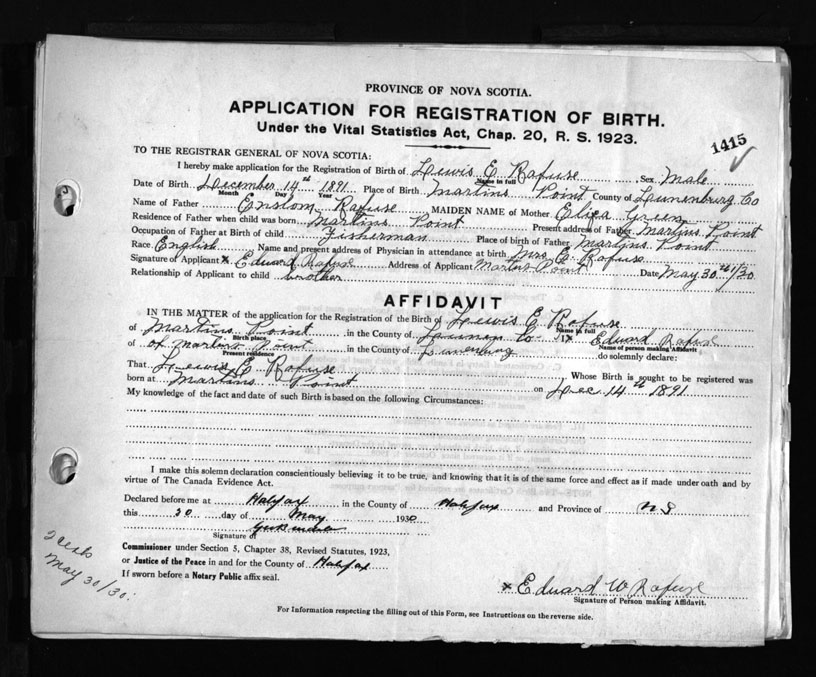 PROVINCE OF NOVA SCOTIA.
APPLICATION FOR REGISTRATION OF BIRTH.
Under the Vital Statistics Act, Chap. 20, R. S. 1923.
1415
TO THE REGISTRAR GENERAL OF NOVA SCOTIA:
I hereby make application for the Registration of Birth of Lewis E Rafuse Sex Male
Name in full
Date of Birth December 14th 1891 Place of Birth Martins Point County of Lunenburg Co
Month Day Year
Name of Father Enslom Rafuse MAIDEN NAME of Mother Eliza Green
Residence of Father when child was born Martins Point Present address of Father Martins Point
Occupation of Father at Birth of child Fisherman Place of birth of Father Martins Point
Race English Name and present address of Physician in attendance at birth Mrs E Rafuse
Signature of Applicant x Eduard Rafuse Address of Applicant Martins Point Date May 30th/30
Relationship of Applicant to child brother
AFFIDAVIT
IN THE MATTER of the application for the Registration of the Birth of Lewis E Rafuse
Name in full
of Martins Point in the County of Lunen Co I x Eduard Rafuse
Birth place Name of person making Affidavit
of of Martins Point in the County of Lunenburg do solemnly declare:
Present residence
That Lewis E Rafuse Whose Birth is sought to be registered was
born at Martins Point on Dec 14th 1891
My knowledge of the fact and date of such Birth is based on the following Circumstances:
I make this solemn declaration conscientiously believing it to be true, and knowing that it is of the same force and effect as if made under oath and by
virtue of The Canada Evidence Act.
Declared before me at Halifax in the County of Halifax and Province of NS
this 30 day of May 1930
Signature of
Commissioner under Section 5, Chapter 38, Revised Statutes, 1923,
or Justice of the Peace in and for the County of Halifax
If sworn before a Notary Public affix seal.
May 30/30.
x Eduard W Rafuse
Signature of Person making Affidavit.
For Information respecting the filling out of this Form, see Instructions on the reverse side.